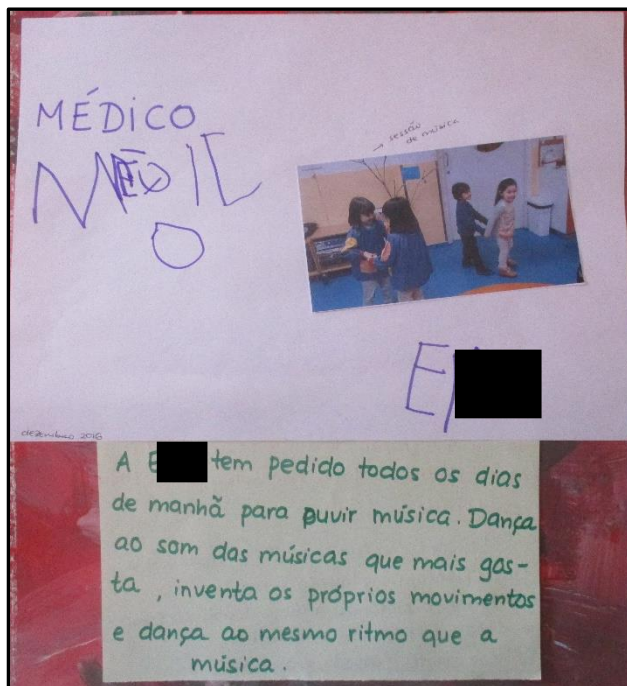 MÉDICO
→ sessão
de música
MÉDIC
O
E
dezembro 2016
A E tem pedido todos os dias
de manhã para ouvir música. Dança
ao som das músicas que mais gos-
ta, inventa os próprios movimentos
e dança ao mesmo ritmo que a
música.